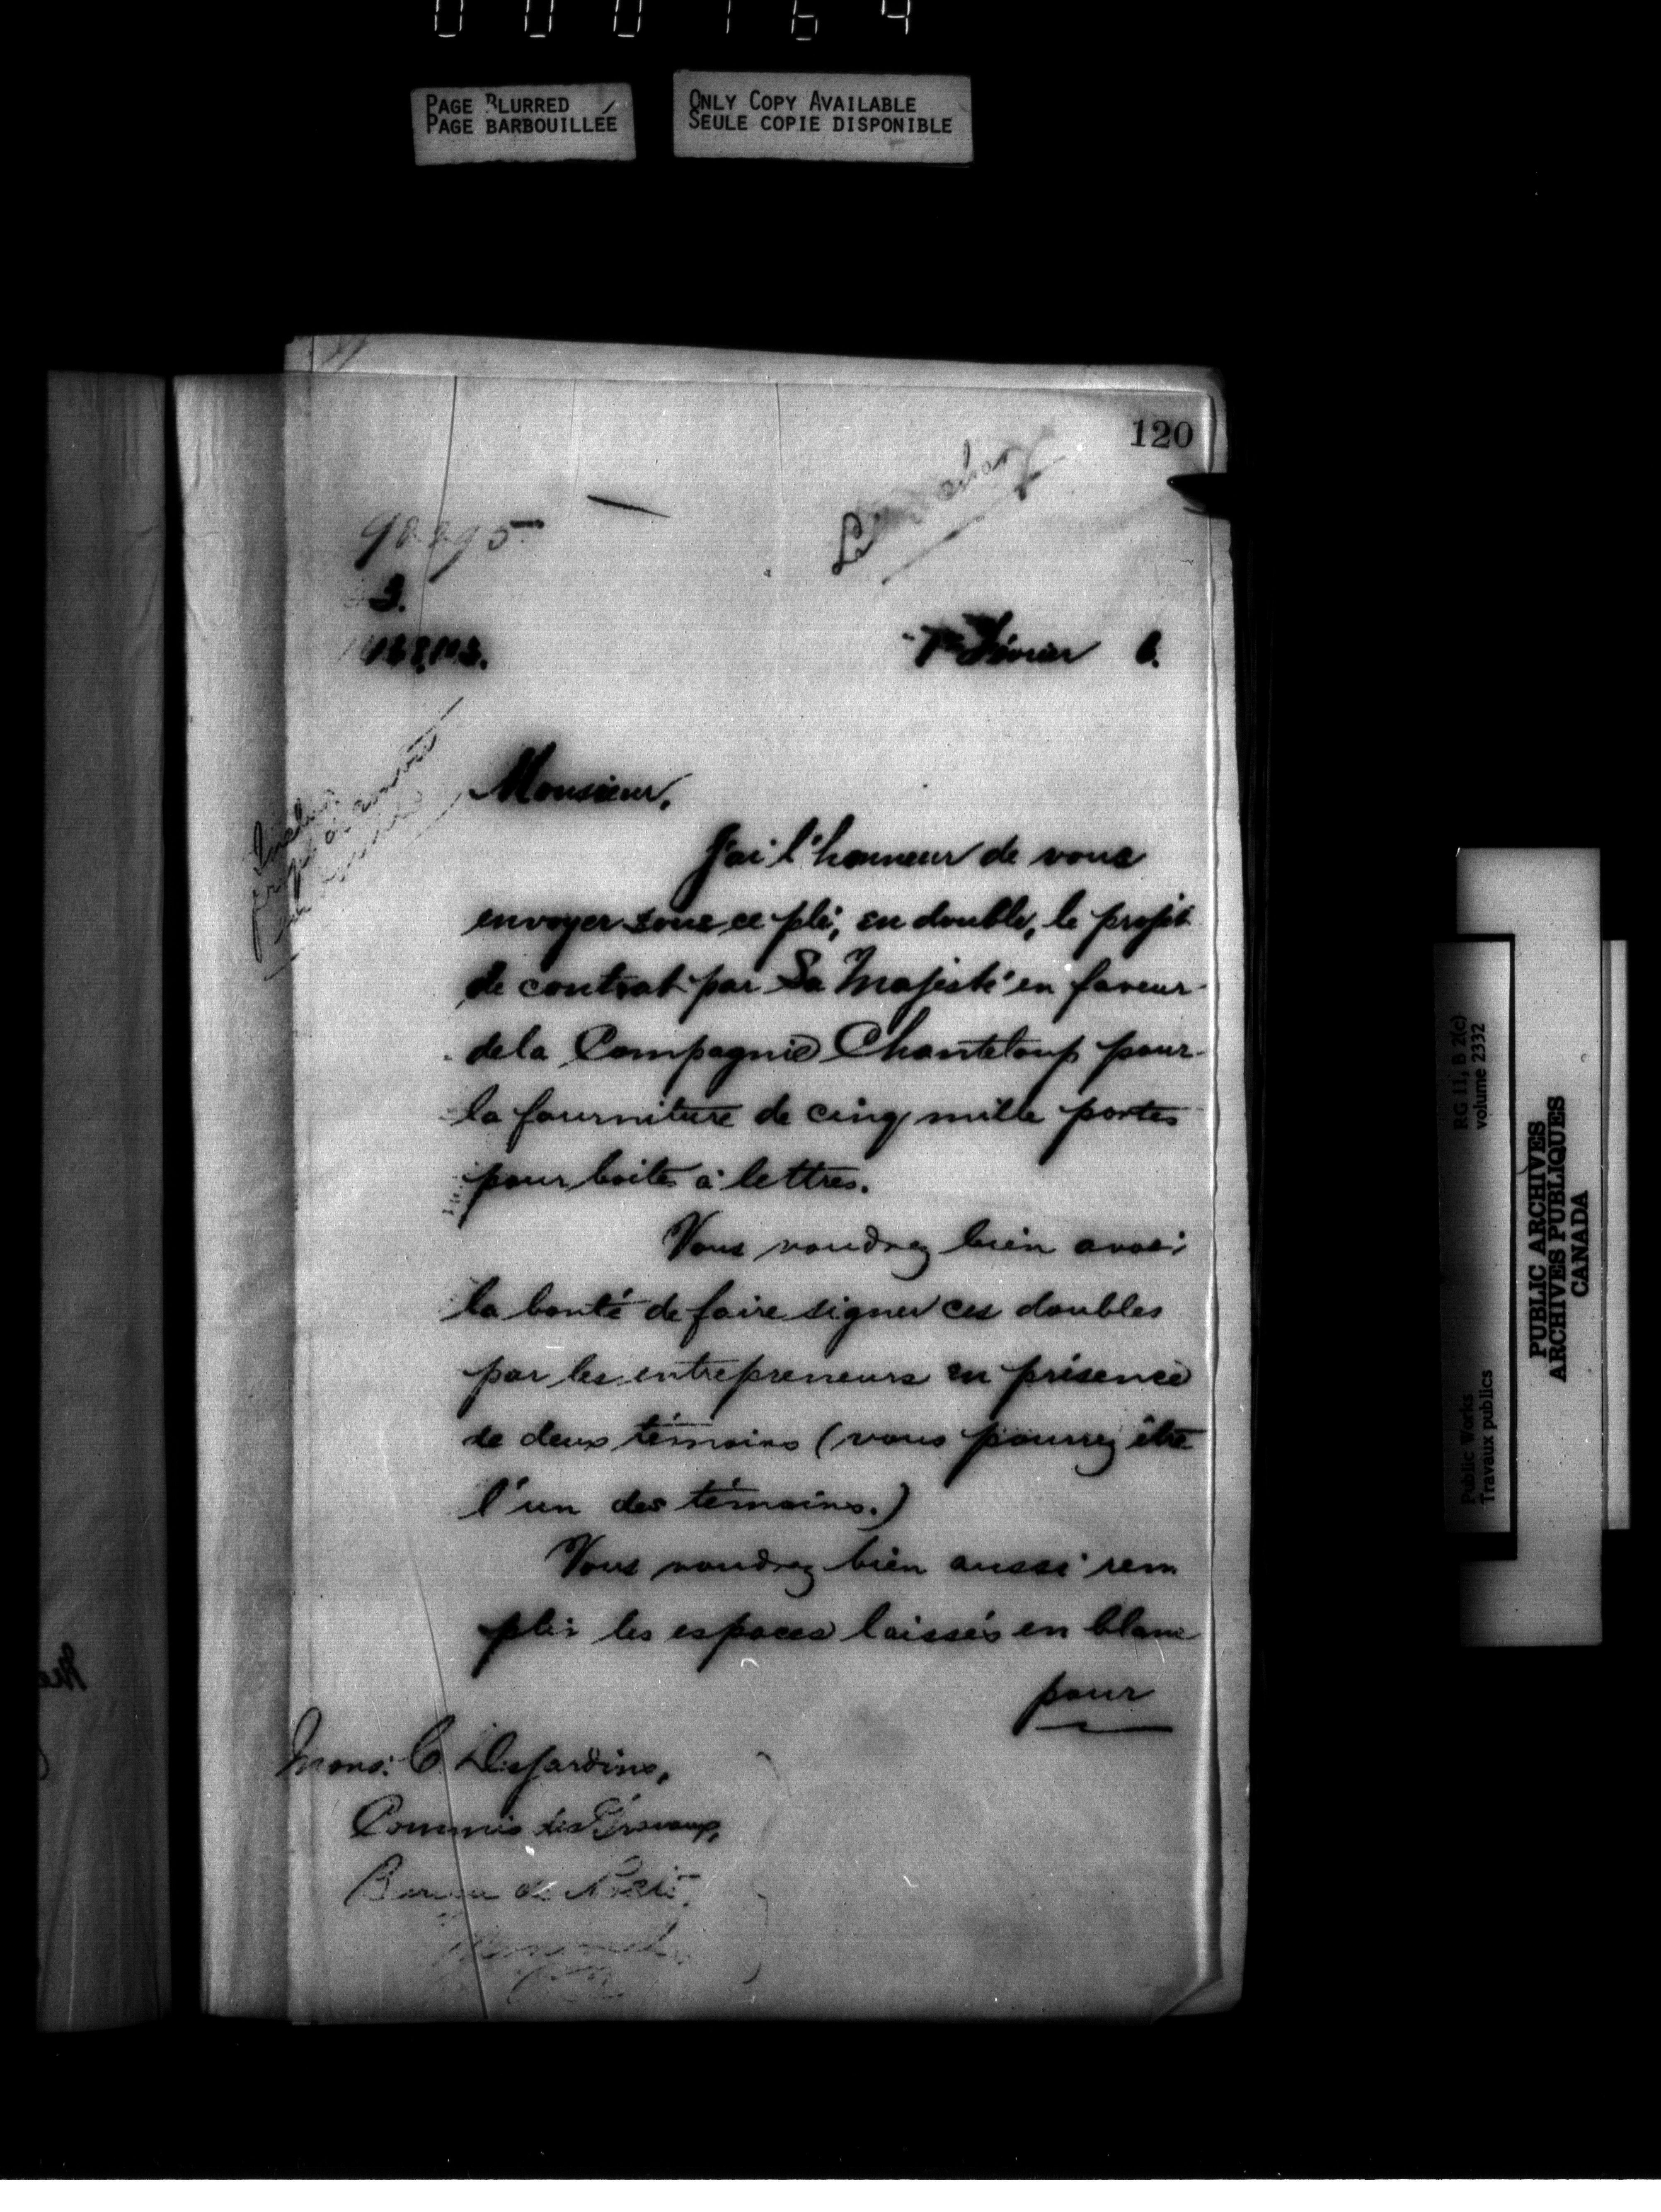 000164
PAGE BLURRED
PAGE BARBOUILLÉE
ONLY COPY AVAILABLE
SEULE COPIE DISPONIBLE
120
3.
1er Février 6.
Monsieur,
J'ai l'honneur de vous
envoyer sous ce pli, en double, le projet
de contrat par Sa Majesté en faveur
de la Compagnie Chanteloup pour
la fourniture de cinq mille portes
pour boites à lettres.
Vous voudrez bien avoir
la bonté de faire signer ces doubles
par les entrepreneurs en présence
de deux témoins (vous pourrez être
l'un des témoins.)
Vous voudrez bien aussi rem
plir les espaces laissés en blanc
pour
Mons: C. Desjardins,
Commis des Travaux,
Bureau de Poste,
RG 11, B 2(c)
volume 2332
Public Works
Travaux publics
PUBLIC ARCHIVES
ARCHIVES PUBLIQUES
CANADA